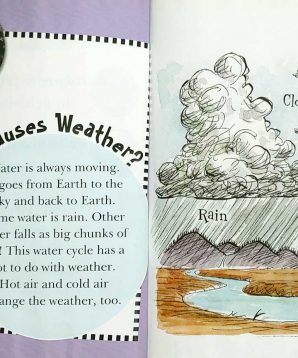 uses Weather?
ater is always moving.
goes from Earth to the
ky and back to Earth.
me water is rain. Other
er falls as big chunks of
! This water cycle has a
ot to do with weather.
Hot air and cold air
ange the weather, too.
Clo
Rain